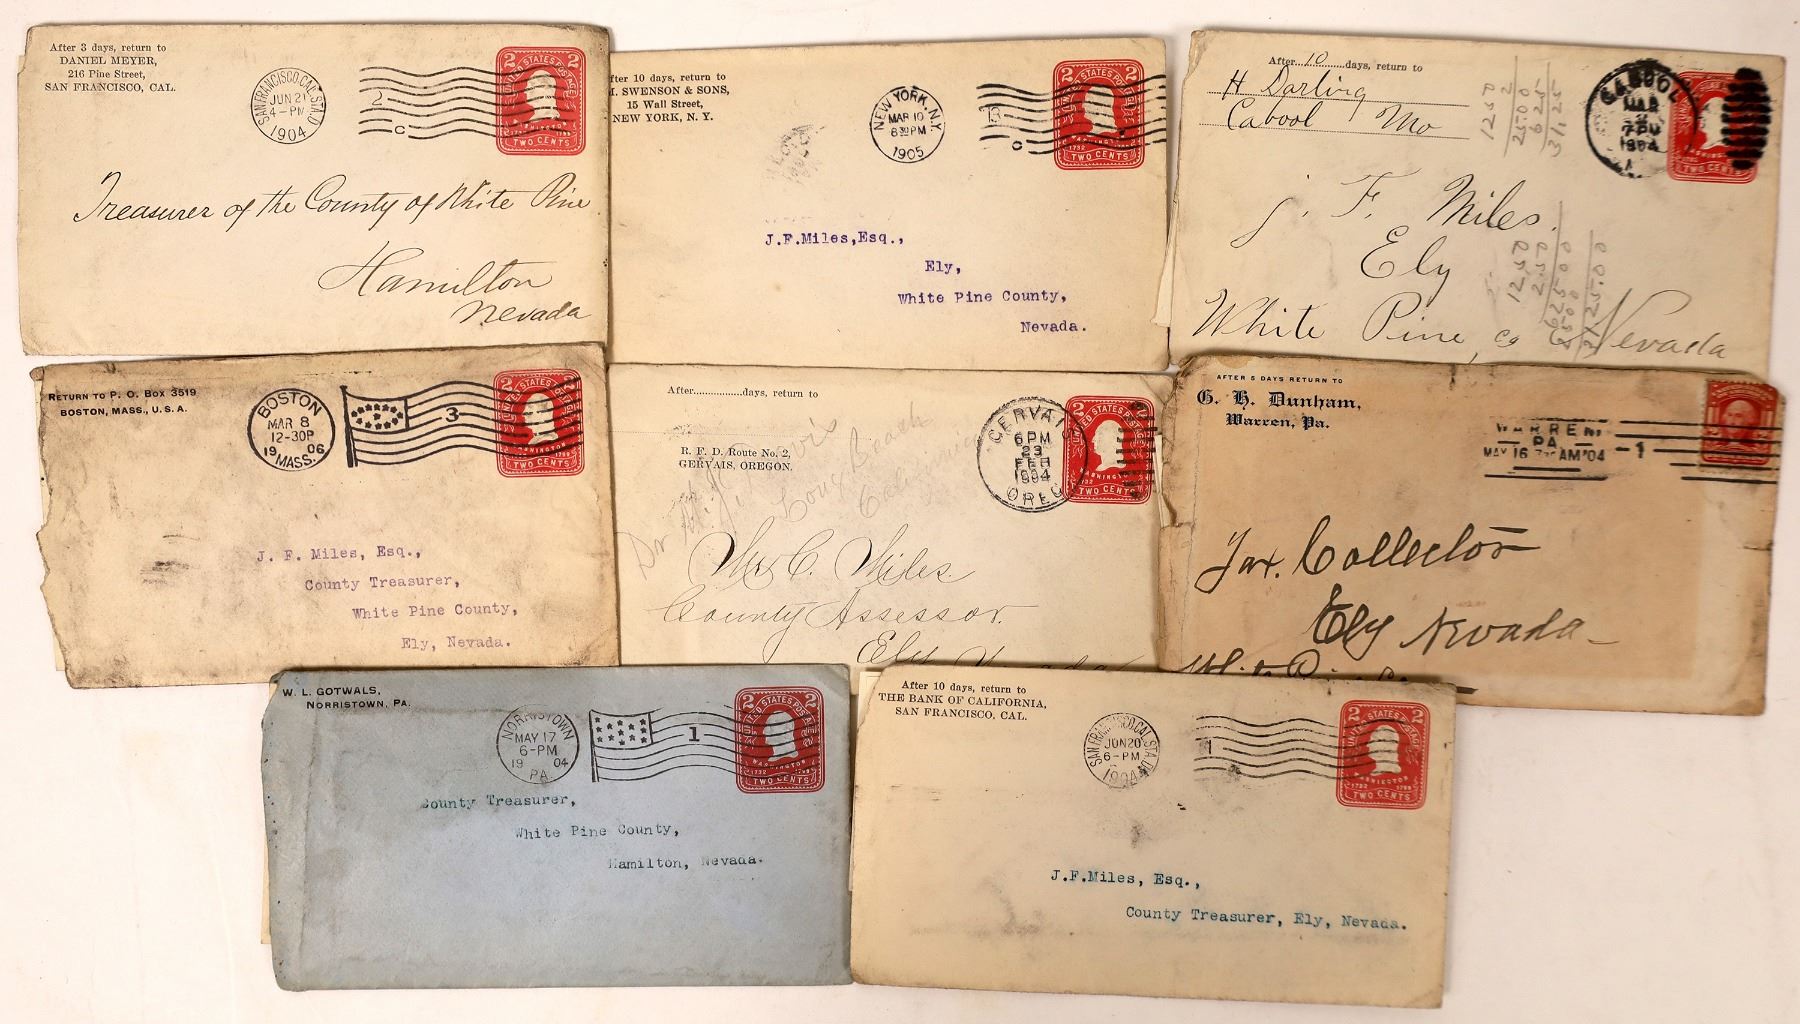 After 3 days, return to
DANIEL MEYER,
216 Pine Street,
SAN FRANCISCO, CAL.
SAN FRANCISCO, CAL. STA. D
JUN 21
4-PM
1904
2
C
2 UNITED STATES POSTAGE 2
WASHINGTON
TWO CENTS
Treasurer of the County of White Pine
Hamilton
Nevada
fter 10 days, return to
SWENSON & SONS,
15 Wall Street,
NEW YORK, N. Y.
NEW YORK, N.Y.
MAR 10
8 30 PM
1905
13
C
2 2
1732
TWO CENTS
J.F.Miles,Esq.,
Ely,
White Pine County,
Nevada.
After 10 days, return to
H Darling
Cabool Mo
1250
2
25.00
6 25
31,25
CABOOL
MAR
7 PM
1904
TWO CENTS
J. F. Miles.
Ely
White Pine, Co Nevada
1250
250
62500
2500
3125.00
RETURN TO P. O. BOX 3519
BOSTON, MASS., U. S. A.
BOSTON
MAR 8
12-30P
19 06
MASS.
3
2 UNITED STATES POSTAGE 2
TWO CENTS
J. F. Miles, Esq.,
County Treasurer,
White Pine County,
Ely, Nevada.
After..................days, return to
R. F. D. Route No. 2,
GERVAIS, OREGON.
Dr
Long Beach
California
GERVAIS
6 PM
23
FEB
1904
OREG
2 UNITED STATES POSTAGE
WASHINGTON
TWO CENTS
Mr C. Miles.
County Assessor.
Ely Nevada
AFTER 5 DAYS RETURN TO
G. H. Dunham,
Warren, Pa.
WARREN
PA
MAY 16 7 30 AM '04
1
Tax. Collector
Ely Nevada
White Pine Co
W. L. GOTWALS,
NORRISTOWN, PA.
NORRISTOWN
MAY 17
6-PM
19 04
PA.
1
2 UNITED STATES POSTAGE 2
WASHINGTON
1732 1799
TWO CENTS
County Treasurer,
White Pine County,
Hamilton, Nevada.
After 10 days, return to
THE BANK OF CALIFORNIA,
SAN FRANCISCO, CAL.
SAN FRANCISCO, CAL. STA. D
JUN 20
6-PM
1904
1
2 UNITED STATES POSTAGE 2
WASHINGTON
1732 1799
TWO CENTS
J.F.Miles, Esq.,
County Treasurer, Ely, Nevada.